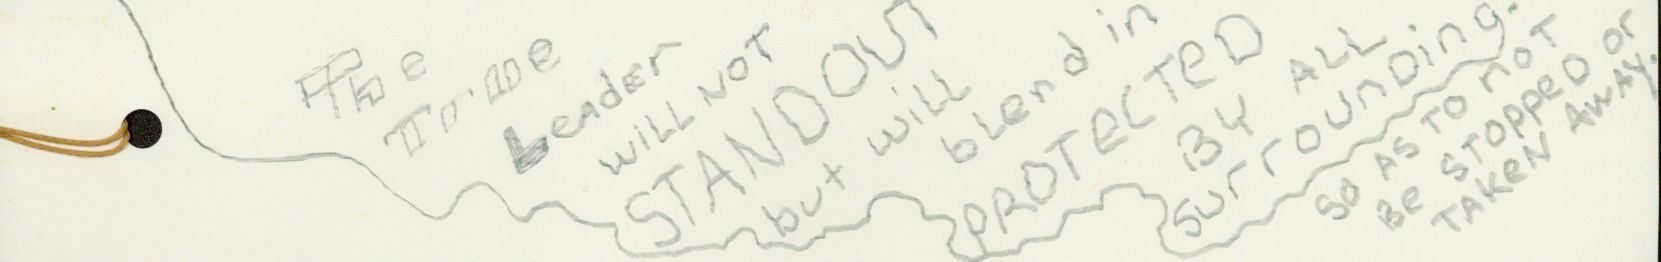 The
True
Leader
will NOT
STANDOUT
but will
blend in
PROTECTED
BY ALL
Surrounding.
SO AS TO NOT
Be STOPPED or
TAKEN AWAY.